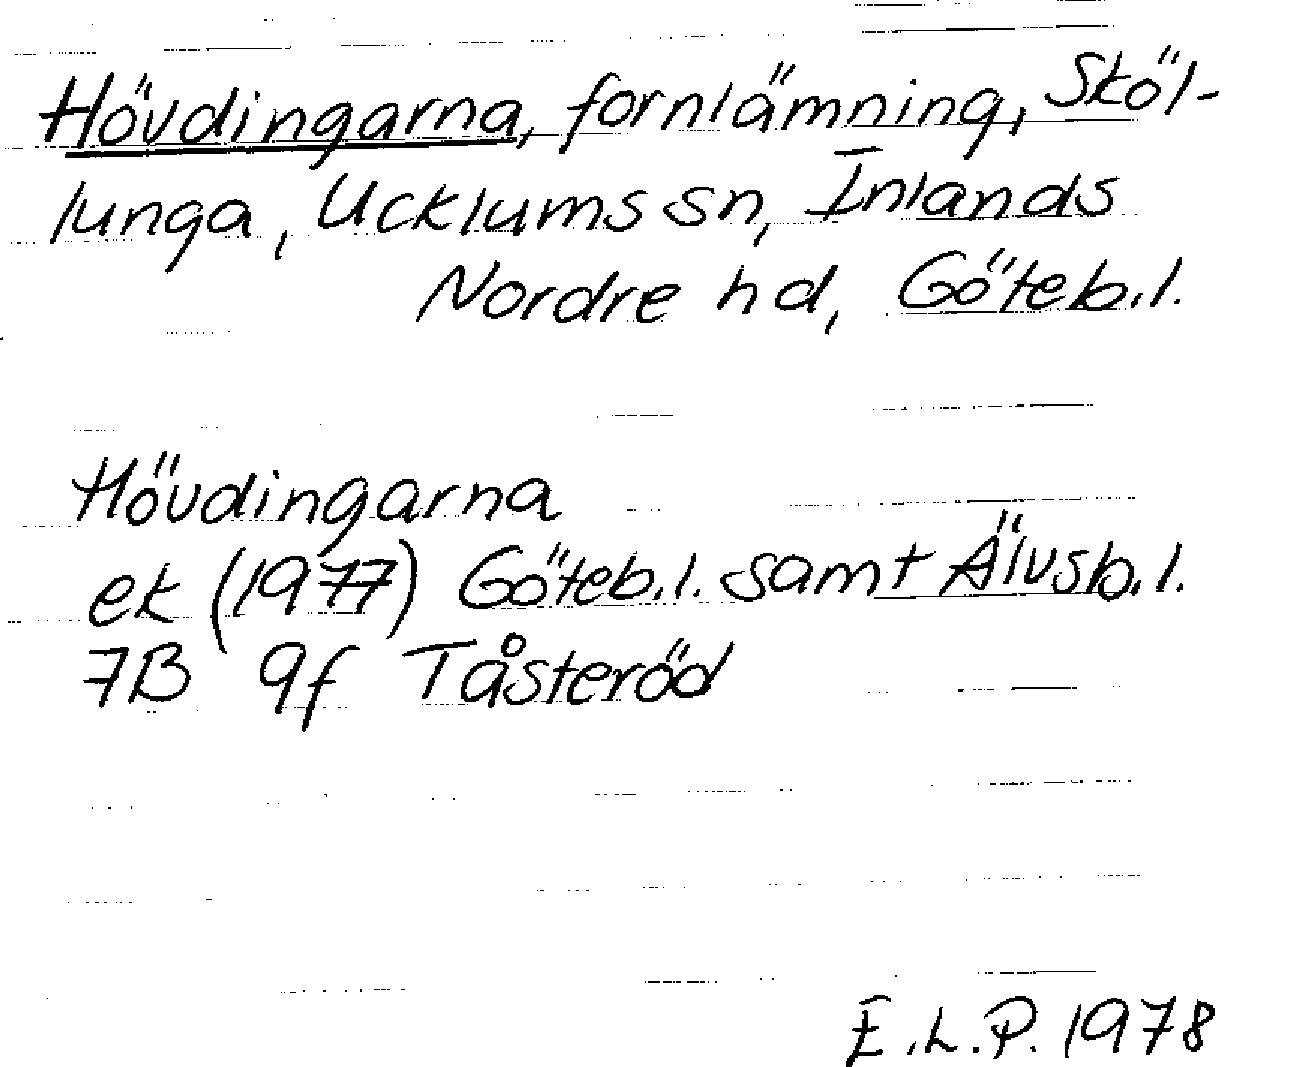 Hövdingarna, fornlämning, Sköl-
lunga, Ucklums sn, Inlands
Nordre hd, Göteb.l.
Hövdingarna
ek (1977) Göteb.l. samt Älvsb.l.
7B 9f Tåsteröd
E.L.P. 1978